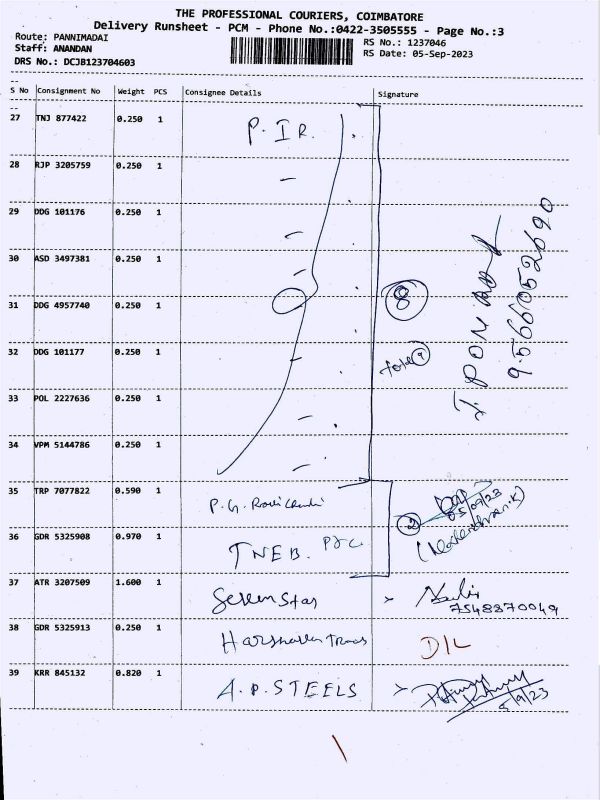 THE PROFESSIONAL COURIERS, COIMBATORE
Delivery Runsheet - PCM - Phone No.:0422-3505555 - Page No.:3
Route: PANNIMADAI
Staff: ANANDAN
DRS No.: DCJB123704603
RS No.: 1237046
RS Date: 05-Sep-2023
S No Consignment No Weight PCS Consignee Details Signature
27 TNJ 877422 0.250 1 P. I R.
28 RJP 3205759 0.250 1
29 DDG 101176 0.250 1
30 ASD 3497381 0.250 1
31 DDG 4957740 0.250 1 8
32 DDG 101177 0.250 1 total 9
33 POL 2227636 0.250 1
34 VPM 5144786 0.250 1
9566052690
35 TRP 7077822 0.590 1 P. G. 05/09/23
36 GDR 5325908 0.970 1 TNEB. 2
37 ATR 3207509 1.600 1 Seven Star 7548870049
38 GDR 5325913 0.250 1 D/L
39 KRR 845132 0.820 1 A. P. STEELS 5/9/23